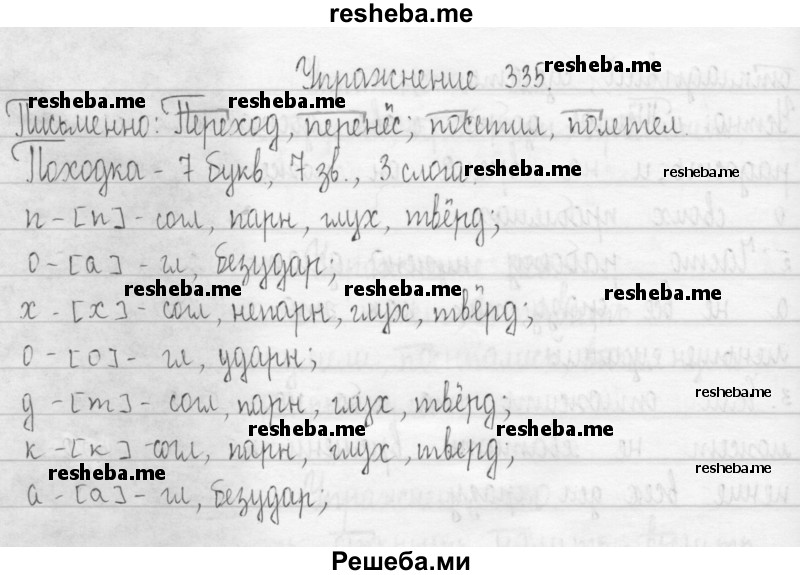 resheba.me
Упражнение 335.
resheba.me
resheba.me resheba.me
Письменно: Переход, перенёс, посетил, полетел.
Походка - 7 букв, 7 зв., 3 слога.
resheba.me resheba.me
п - [п] - согл, парн, глух, твёрд;
о - [а] - гл, безудар;
resheba.me resheba.me resheba.me
х - [х] - согл, непарн, глух, твёрд;
о - [о] - гл, ударн;
resheba.me
д - [т] - согл, парн, глух, твёрд;
resheba.me resheba.me
к - [к] - согл, парн, глух, твёрд;
resheba.me resheba.me
а - [а] - гл, безудар;
Решеба.ми